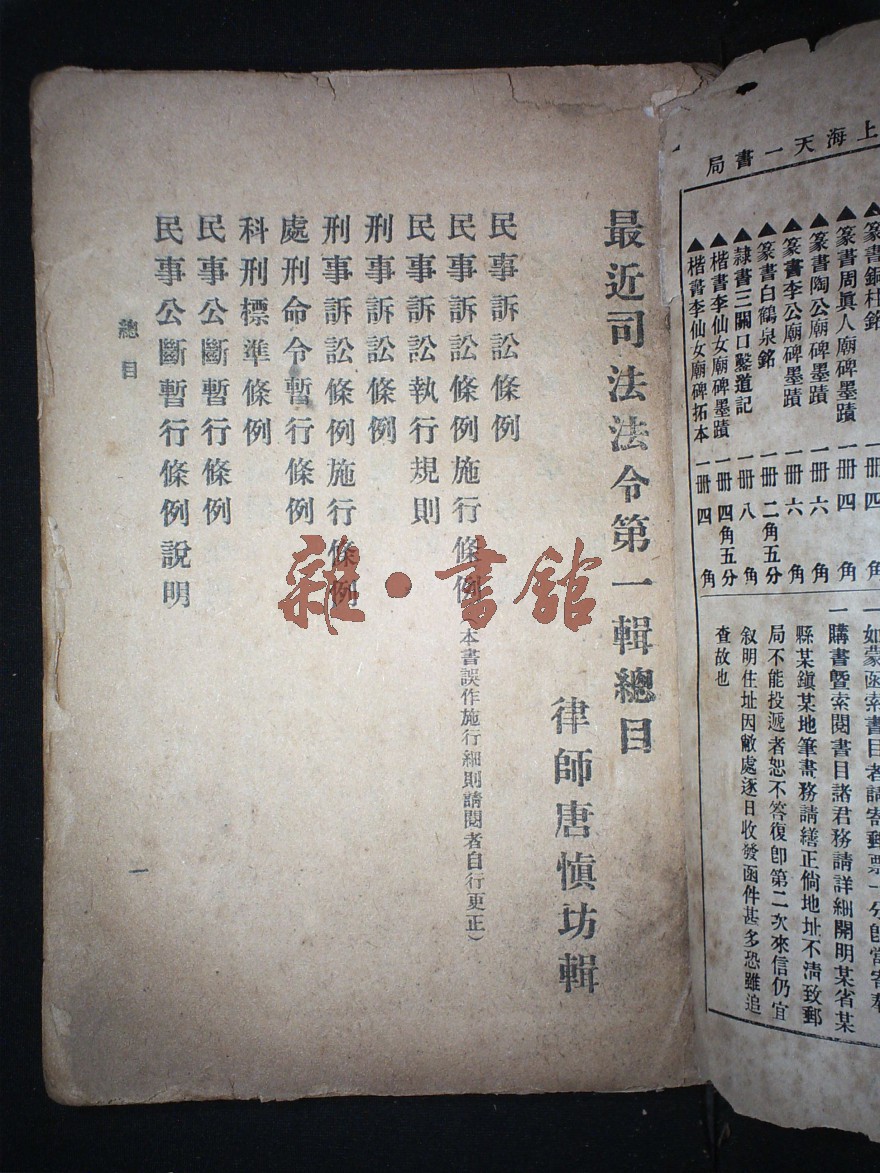 上海天一書局
▲篆書銅柱銘 一冊 四角
▲篆書周眞人廟碑墨蹟 一冊 四角
▲篆書陶公廟碑墨蹟 一冊 六角
▲篆書李公廟碑墨蹟 一冊 六角
▲篆書白鶴泉銘 一冊 二角五分
▲隸書三關口鑿道記 一冊 八角
▲楷書李仙女廟碑墨蹟 一冊 四角五分
▲楷書李仙女廟碑拓本 一冊 四角
一如蒙函索書目者請寄郵票一分卽當寄奉
一購書曁索閱書目諸君務請詳細開明某省某
縣某鎭某地筆畫務請繕正倘地址不淸致郵
局不能投遞者恕不答復卽第二次來信仍宜
叙明住址因敝處逐日收發函件甚多恐難追
查故也
最近司法法令第一輯總目
律師唐愼坊輯
民事訴訟條例
民事訴訟條例施行條例(本書誤作施行細則請閱者自行更正)
民事訴訟執行規則
刑事訴訟條例
刑事訴訟條例施行條例
處刑命令暫行條例
科刑標準條例
民事公斷暫行條例
民事公斷暫行條例說明
總目
一
雜·書館